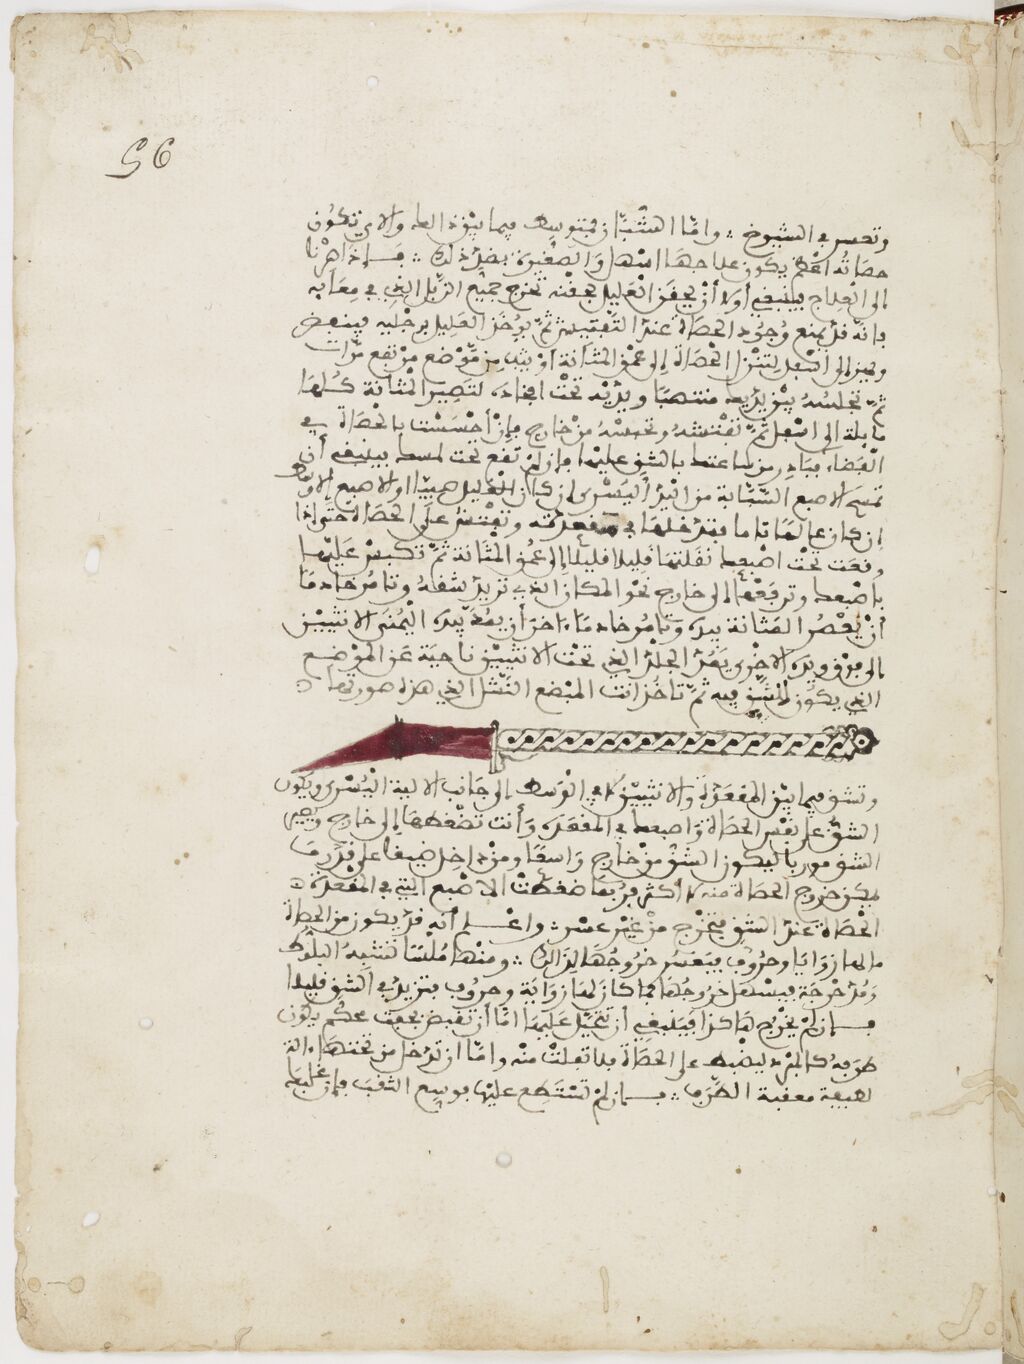 56
وتعسر في الشيوخ ؞ واما الشبّان فمتوسط فيما بين ذلك والذي تكون
حصاته اعظم يكون علاجها اسهل والصغيرة بضد ذلك ؞ فاذا صرنا
الى العلاج فينبغي اولا أن يحقن العليل بحقنة تخرج جميع الزبل الذي في معاه
بانه قد يمنع وجود الحصاة عند التفتيش ثم يوخذ العليل برجليه فينفض
ويهز الى اسفل لتنزل الحصاة إلى عمق المثانة او يثب من موضع مرتفع مرّات
ثم تجلسه بين يديك منتصبا ويديه تحت افخاذه لتصير المثانة كلها
مايلة الى اسفل ثم تفتشه وتحسه من خارج فإن أحسست بالحصاة في
الفضاء فبادر من ساعتك بالشق عليها فإن لم تقع تحت لمسك فينبغي أن
تمسح الاصبع السبّابة من اليد اليسرى إن كان العليل صبيّا او الاصبع الاوسط
إن كان غلاما تاما فتدخلها في مقعدته وتفتش على الحصاة حتى إذا
وقعت تحت اصبعك نقلتها قليلا قليلا إلى عمق المثانة ثم تكبس عليها
باصبعك وترفعها إلى خارج نحو المكان الذي تريد شقه وتامر خادما
أن يعصر المثانة بيده وتامر خادما ءاخر أن يمد بيده اليمنى الانثيين
الى فوق وبيده الاخرى يمد الجلد الذي تحت الانثيين ناحية عن الموضع
الذي يكون الشق فيه ثم تاخذ انت المبضع النشل الذي هذه صورتها
وتشق فيما بين المقعدة والانثيين لا في الوسط الى جانب الالية اليسرى ويكون
الشق على نفس الحصاة واصبعك في المقعدة وأنت تضغطها إلى خارج ويصير
الشق موربا ليكون الشق من خارج واسعا ومن داخل ضيقا على قدر ما
يمكن خروج الحصاة منه لا أكثر فربما ضغطت الاصبع التي في المقعدة
الحصاة عند الشق فتخرج من غير عسر ؞ واعلم أنه قد يكون من الحصاة
ما لها زوايا وحروف فيعسر خروجها لذلك ؞ ومنها ملسا تشبه البلوط
ومدحرجة فيسهل خروجها فما كان لها زواية وحروف فتزيد في الشق قليلا
فإن لم تخرج هاكذا فينبغي أن تتحيّل عليها امّا أن تقبض بجفت محكم يكون
طرفه كالمبرد ليضبط على الحصاة فلا تفلت منه وامّا ان تدخل من تحتها ءالة
لطيفة معقبة الطرف ؞ فإن لم تستطع عليها فوسع الثقب فإن غلبك